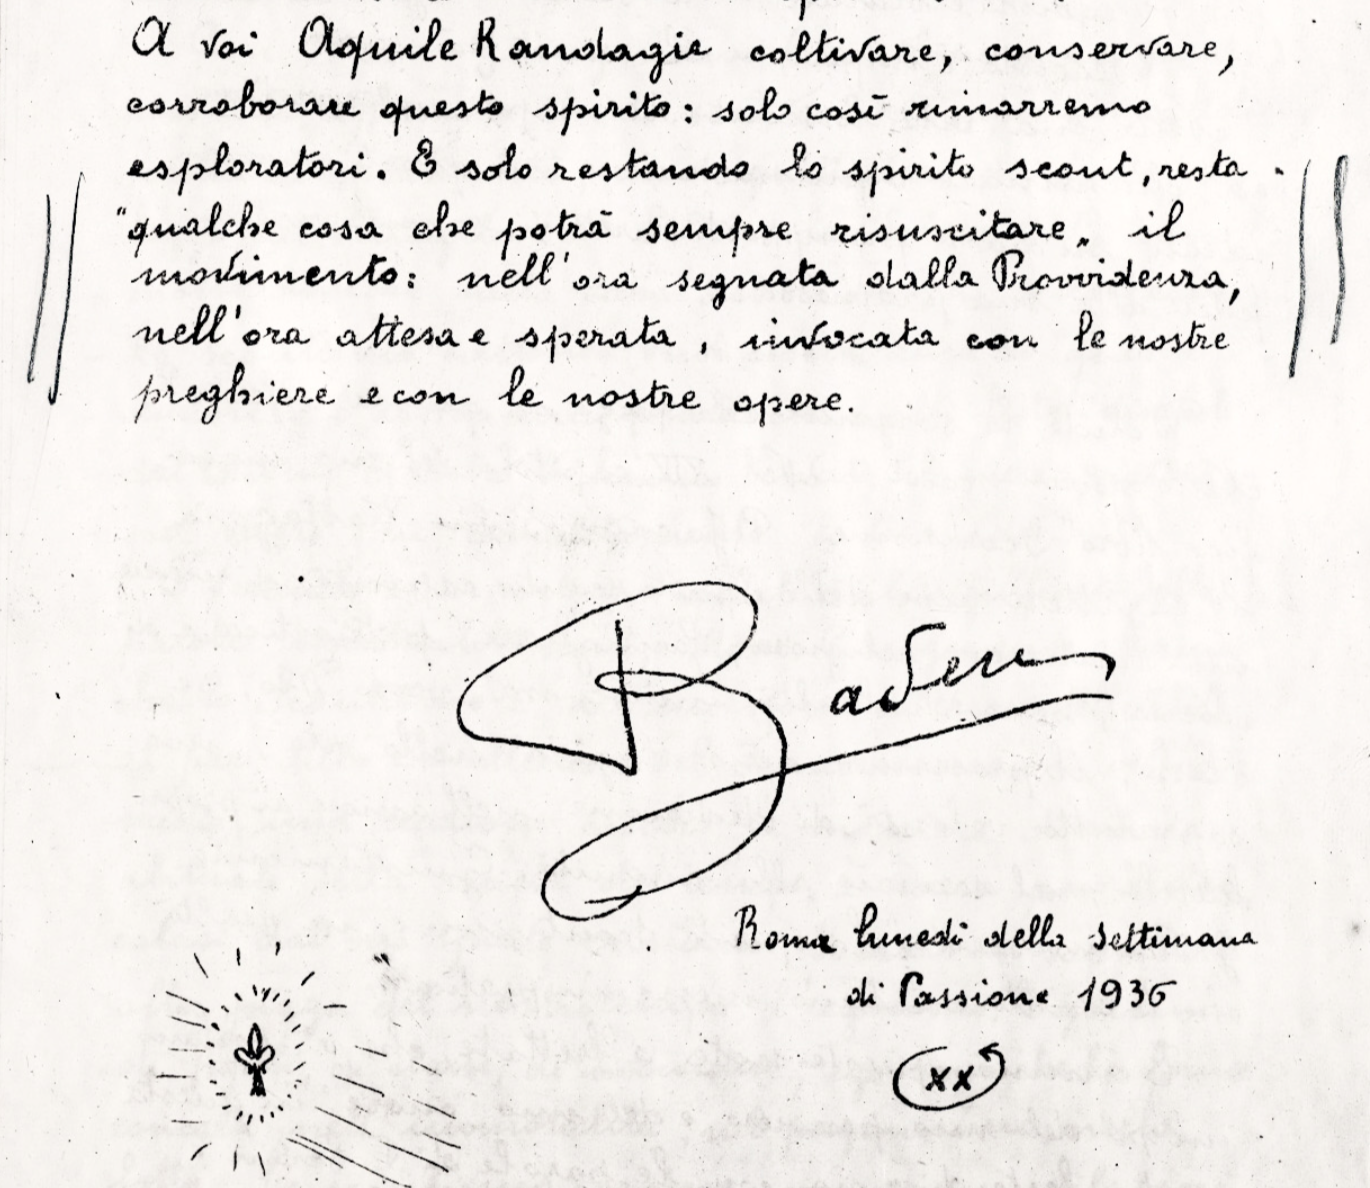 A voi Aquile Randagie coltivare, conservare,
corroborare questo spirito: solo così rimarremo
esploratori. E solo restando lo spirito scout, resta
"qualche cosa che potrà sempre risuscitare" il
movimento: nell'ora segnata dalla Provvidenza,
nell'ora attesa e sperata, invocata con le nostre
preghiere e con le nostre opere.
Baden
Roma lunedì della settimana
di Passione 1936
xx